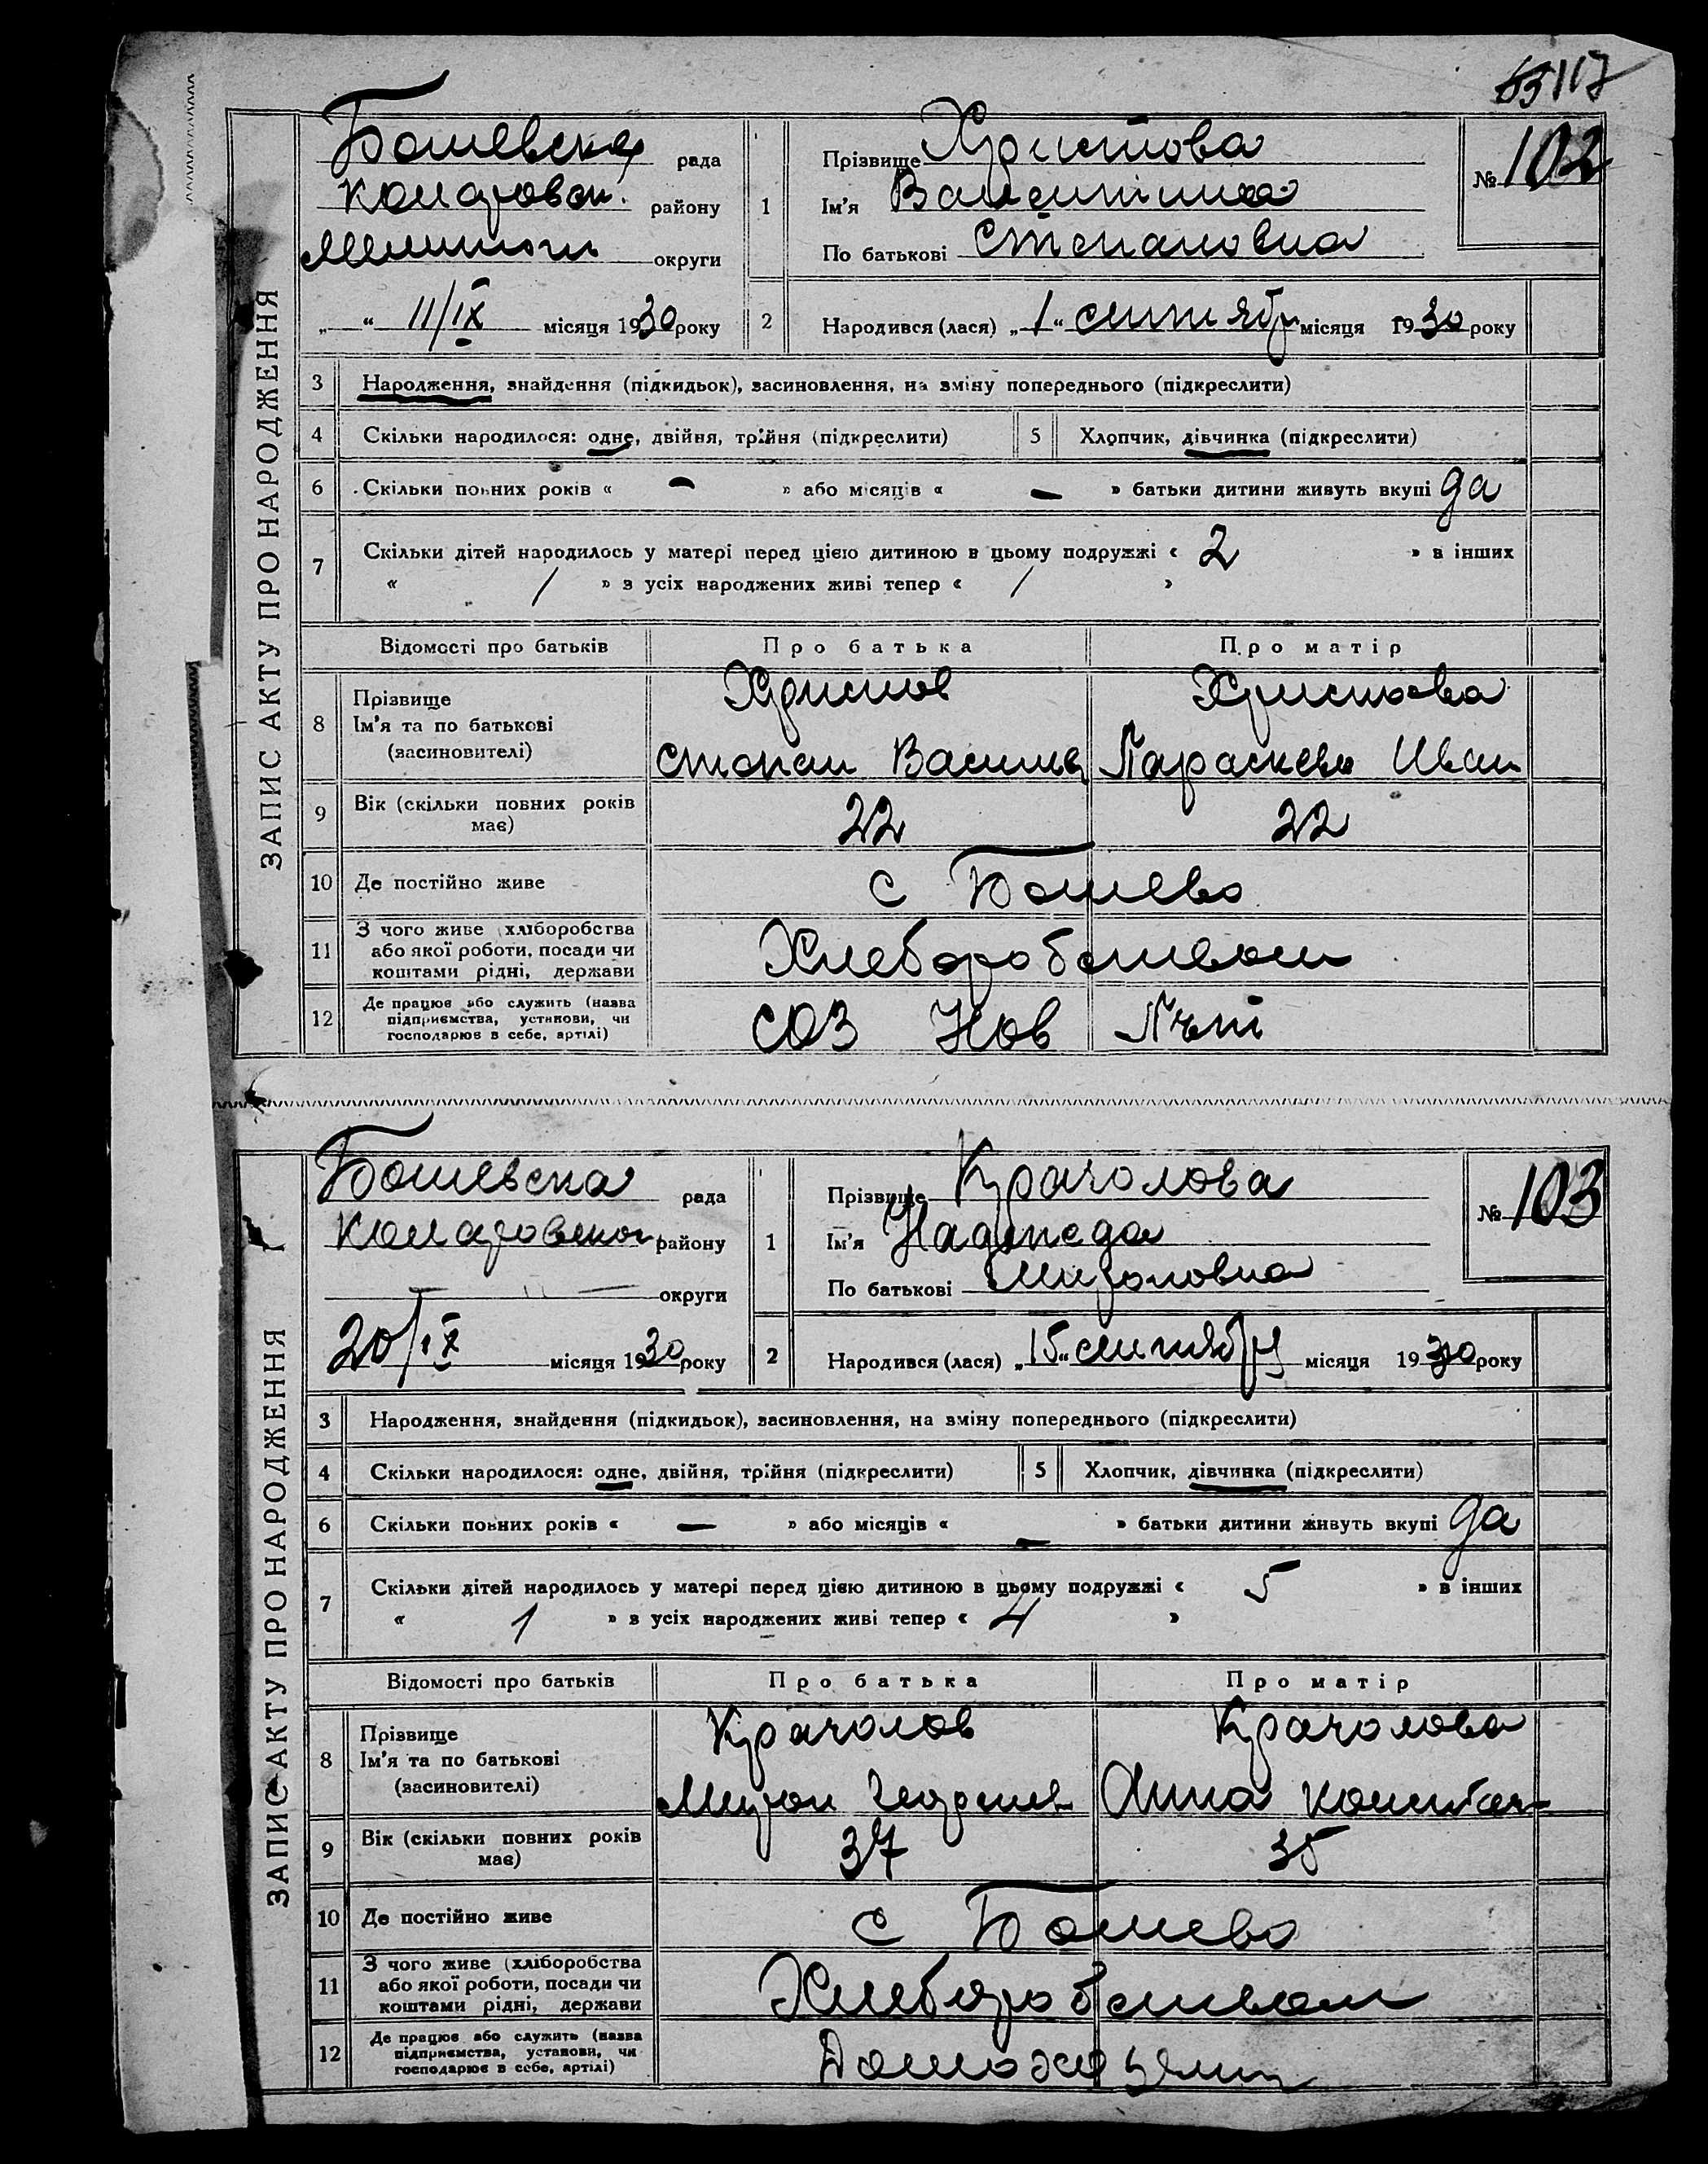 117
ЗАПИС АКТУ ПРО НАРОДЖЕННЯ
Ботевска рада
району
округи
„ “ 11/IX місяця 1930 року
1 Прізвище Христова
Ім'я Валентина
По батькові Степановна
№ 102
2 Народився (лася) „1“ сентября місяця 1930 року
3 Народження, знайдення (підкидьок), засиновлення, на зміну попереднього (підкреслити)
4 Скільки народилося: одне, двійня, трійня (підкреслити) 5 Хлопчик, дівчинка (підкреслити)
6 Скільки повних років « — » або місяців « — » батьки дитини живуть вкупі да
7 Скільки дітей народилось у матері перед цією дитиною в цьому подружжі « 2 » в інших
« / » з усіх народжених живі тепер « / »
Відомості про батьків Про батька Про матір
8 Прізвище Христов Христова
Ім'я та по батькові
(засиновителі) Степан Василев Параскева Иван
9 Вік (скільки повних років має) 22 22
10 Де постійно живе с Ботево
11 З чого живе (хліборобства
або якої роботи, посади чи
коштами рідні, держави Хлеборобством
12 Де працює або служить (назва
підприємства, установи, чи
господарює в себе, артілі) СОЗ Нов Путь
ЗАПИС АКТУ ПРО НАРОДЖЕННЯ
Ботевска рада
району
округи
20/IX місяця 1930 року
1 Прізвище Крачолова
Ім'я Надежда
По батькові Мироновна
№ 103
2 Народився (лася) „15“ сентября місяця 1930 року
3 Народження, знайдення (підкидьок), засиновлення, на зміну попереднього (підкреслити)
4 Скільки народилося: одне, двійня, трійня (підкреслити) 5 Хлопчик, дівчинка (підкреслити)
6 Скільки повних років « — » або місяців « — » батьки дитини живуть вкупі да
7 Скільки дітей народилось у матері перед цією дитиною в цьому подружжі « 5 » в інших
« 1 » з усіх народжених живі тепер « 4 »
Відомості про батьків Про батька Про матір
8 Прізвище Крачолов Крачолова
Ім'я та по батькові
(засиновителі) Мирон Георгиев Анна Констан
9 Вік (скільки повних років має) 37 35
10 Де постійно живе с Ботево
11 З чого живе (хліборобства
або якої роботи, посади чи
коштами рідні, держави Хлеборобством
12 Де працює або служить (назва
підприємства, установи, чи
господарює в себе, артілі)